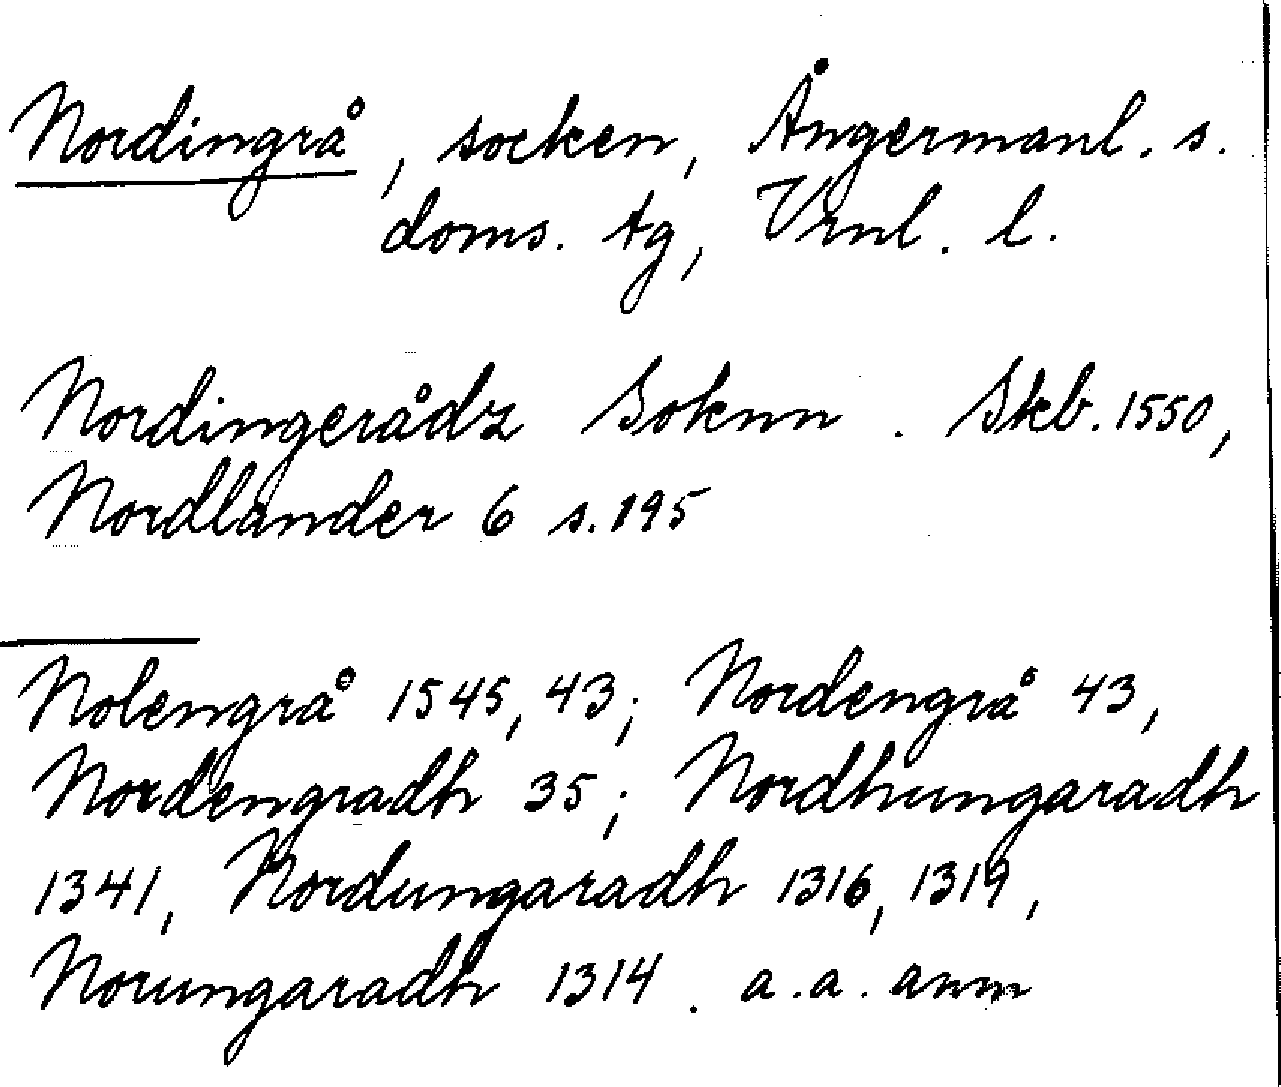 Nordingrå, socken, Ångermanl. s.
doms. tg, Vrnl. l.
Nordingerådz Soknn. Skb. 1550,
Nordlander 6 s. 195
Nolengrå 1545, 43; Nordengrå 43,
Nordengradh 35; Nordhungaradh
1341, Nordungaradh 1316, 1319,
Norungaradh 1314. a.a. anm